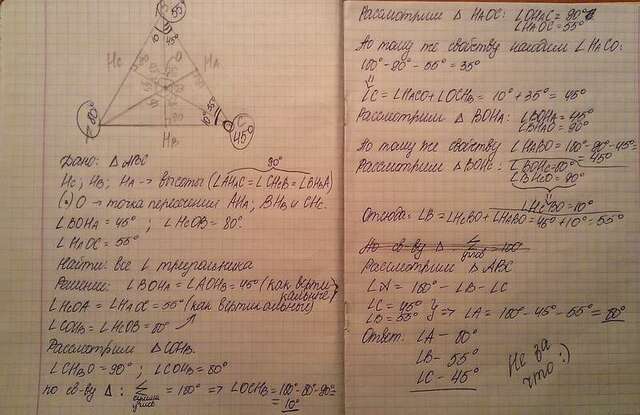 B 55°
10 45°
Hc
HA
O
80°
HB
10° 35°
C
45°
Дано: Δ ABC
90°
Hc; HB; HA → высоты (∠AHAC = ∠CHBB = ∠BHcA)
(·) O → точка пересечения AHA; BHB и CHc.
∠BOHA = 45° ; ∠HcOB = 80°.
∠HAOC = 55°
Найти: все ∠ треугольника
Решение: ∠BOHA = ∠AOHB = 45° (как верти-
кальные)
∠HcOA = ∠HAOC = 55° (как вертикальные)
∠COHB = ∠HcOB = 80°
Рассмотрим ΔCOHB.
∠CHBO = 90° ; ∠COHB = 80°
по св-ву Δ : Σ углов = 180° => ∠OCHB = 180°-80°-90°=
= 10°
Рассмотрим Δ HAOC: ∠OHAC = 90°
∠HAOC = 55°
По тому же свойству находим ∠HACO:
180° - 90° - 55° = 35°
∠C = ∠HACO + ∠OCHB = 10° + 35° = 45°
Рассмотрим Δ BOHA: ∠BOHA = 45°
∠BHAO = 90°
По тому же свойству ∠HABO = 180°-90-45=
= 45°
Рассмотрим Δ BOHc: ∠BOHc = 80°
∠BHcO = 90°
∠HcBO = 10°
Отсюда: ∠B = ∠HcBO + ∠HABO = 45° + 10° = 55°
По св-ву Δ Σ углов = 180°
Рассмотрим Δ ABC
∠A = 180° - ∠B - ∠C
∠C = 45° }
∠B = 55° } => ∠A = 180° - 45° - 55° = 80°
Ответ: ∠A - 80°
∠B - 55°
∠C - 45°
Не за
что :)